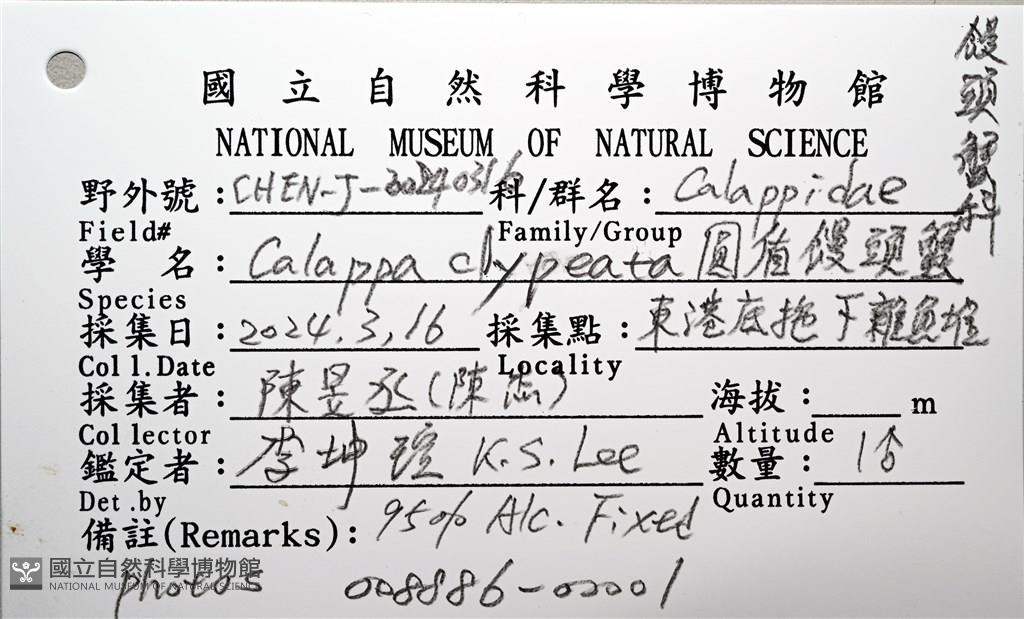 饅頭蟹科
國立自然科學博物館
NATIONAL MUSEUM OF NATURAL SCIENCE
野外號：CHEN-J-20240316 科/群名：Calappidae
Field# Family/Group
學 名：Calappa clypeata 圓盾饅頭蟹
Species
採集日：2024.3.16 採集點：東港底拖下雜魚堆
Coll.Date Locality
採集者：陳昱丞(陳 ) 海拔： m
Collector Altitude
鑑定者：李坤瑄 K.S. Lee 數量：1♂
Det.by Quantity
備註(Remarks)：95% Alc. Fixed
photos 008886-00001
國立自然科學博物館
NATIONAL MUSEUM OF NATURAL SCIENCE